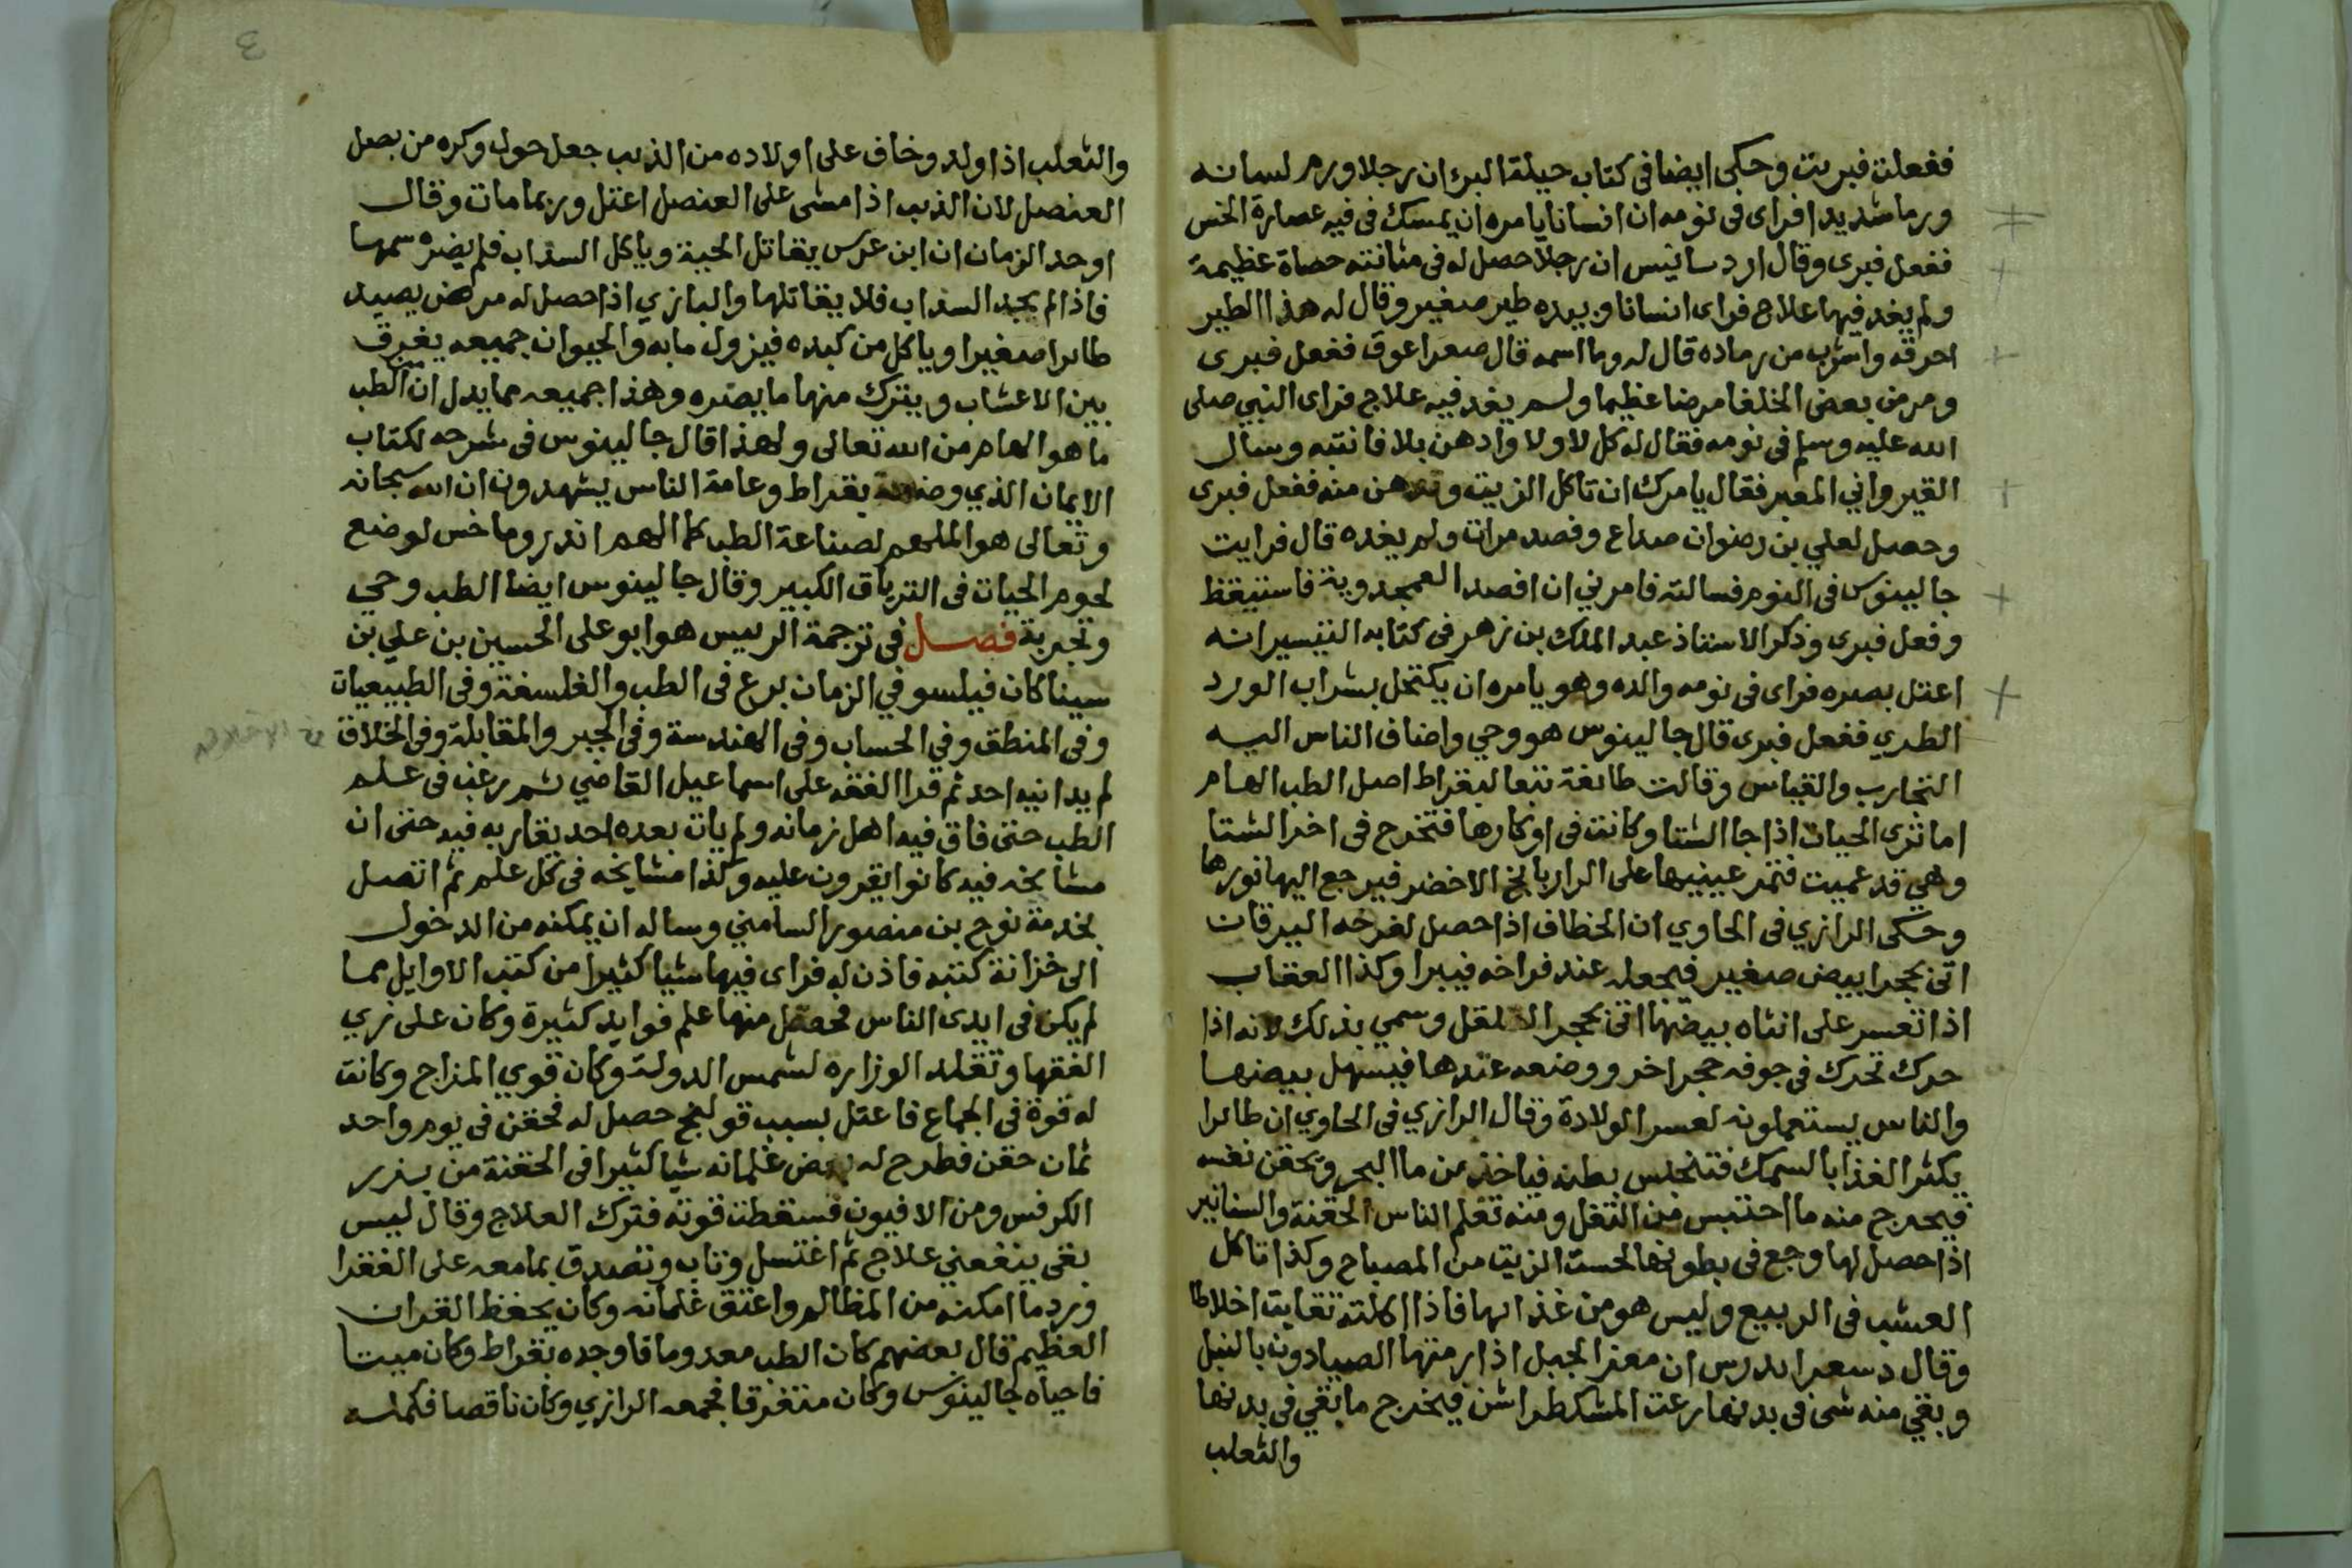 ففعلت فبريت وحكى ايضا في كتاب حيلة البرء ان رجلا ورم لسانه
ورما شديدا فراى في نومه ان انسانا يامره ان يمسك في فيه عصارة الخس
ففعل فبرى وقال ارد سانيس ان رجلا حصل له في مثانته حصاة عظيمة
ولم يفد فيها علاج فراى انسانا وبيده طير صغير وقال له هذا الطير
احرقه واشرب من رماده قال له وما اسمه قال صعراعوق ففعل فبرى
ومرض بعض الخلفا مرضا عظيما ولم يفد فيه علاج فراى النبي صلى
الله عليه وسلم في نومه فقال له كل لا ولا وادهن بلا فانتبه وسال
القيرواني المعبر فقال يامرك ان تاكل الزيت وتدهن منه ففعل فبرى
وحصل لعلي بن رضوان صداع وفصد مرات ولم يفده قال فرايت
جالينوس في النوم فسالته فامرني ان افصد القمحدوية فاستيقظ
وفعل فبرى وذكر الاستاذ عبد الملك بن زهر في كتابه التيسير انه
اعتل بصره فراى في نومه والده وهو يامره ان يكتحل بشراب الورد
الطري ففعل فبرى قال جالينوس هو وحي واضاف الناس اليه
التجارب والقياس وقالت طائفة تبعا لبقراط اصل الطب الهام
اما ترى الحيات اذا جا الشتا وكانت في اوكارها فتخرج في اخر الشتا
وهي قد عميت فتمر عينيها على الرازيانج الاخضر فيرجع اليها نورها
وحكى الرازي في الحاوي ان الخطاف اذا حصل لفرخه اليرقان
اتى بحجر ابيض صغير فيجعله عند فراخه فيبرا وكذا العقاب
اذا تعسر على انثاه بيضها اتى بحجر القلقل وسمي بذلك لانه اذا
حرك تحرك في جوفه حجر اخر ووضعه عندها فيسهل بيضها
والناس يستعملونه لعسر الولادة وقال الرازي في الحاوي ان طائرا
يكثر الغذا بالسمك فتنحبس بطنه فياخذ من ما البحر ويحقن نفسه
فيخرج منه ما احتبس من الثفل ومنه تعلم الناس الحقنة والسنانير
اذا حصل لها وجع في بطونها لحست الزيت من المصباح وكذا تاكل
العشب في الربيع وليس هو من غذائها فاذا اكلته تقايت اخلاطا
وقال دسعرايدرس ان معز الجبل اذا رمتها الصيادون بالنبل
وبقي منه شى في بدنها رعت المشكطراشن فيخرج ما بقي في بدنها
والثعلب
والثعلب اذا ولد وخاف على اولاده من الذيب جعل حول وكره من بصل
العنصل لان الذيب اذا مشى على العنصل اعتل وربما مات وقال
اوحد الزمان ان ابن عرس يقاتل الحية وياكل السذاب فلم يضره سمها
فاذا لم يجد السذاب فلا يقاتلها والبازي اذا حصل له مرض يصيد
طائرا صغيرا وياكل من كبده فيزول ما به والحيوان جميعه يفرق
بين الاعشاب ويترك منها ما يضره وهذا جميعه مما يدل ان الطب
ما هو الهام من الله تعالى ولهذا قال جالينوس في شرحه لكتاب
الايمان الذي وضعه بقراط وعامة الناس يشهدون ان الله سبحانه
وتعالى هو الملهم لصناعة الطب كما الهم اندروماخس لوضع
لحوم الحيات في الترياق الكبير وقال جالينوس ايضا الطب وحي
وتجربة فصل في ترجمة الرييس هو ابو على الحسين بن علي بن
سينا كان فيلسوفي الزمان برع في الطب والفلسفة وفي الطبيعيات
وفي المنطق وفي الحساب وفي الهندسة وفي الجبر والمقابلة وفي الخلاف
لم يدانيه احد ثم قرا الفقه على اسماعيل القاضي ثم رغب في علم
الطب حتى فاق فيه اهل زمانه ولم يات بعده احد يقاربه فيه حتى ان
مشايخه فيه كانوا يقرون عليه وكذا مشايخه في كل علم ثم اتصل
بخدمة نوح بن منصور السامني وساله ان يمكنه من الدخول
الى خزانة كتبه فاذن له فراى فيها شيا كثيرا من كتب الاوايل مما
لم يكن في ايدى الناس فحصل منها علم فوايد كثيرة وكان على زي
الفقها وتقلد الوزاره لشمس الدولة وكان قوي المزاج وكانت
له قوة في الجماع فاعتل بسبب قولنج حصل له فحقن في يوم واحد
ثمان حقن فطرح له بعض غلمانه شيا كثيرا في الحقنة من بزر
الكرفس ومن الافيون فسقطت قوته فترك العلاج وقال ليس
بقى ينفعني علاج ثم اغتسل وتاب وتصدق بما معه على الفقرا
ورد ما امكنه من المظالم واعتق غلمانه وكان يحفظ القران
العظيم قال بعضهم كان الطب معدوما فاوجده بقراط وكان ميتا
فاحياه جالينوس وكان متفرقا فجمعه الرازي وكان ناقصا فكمله